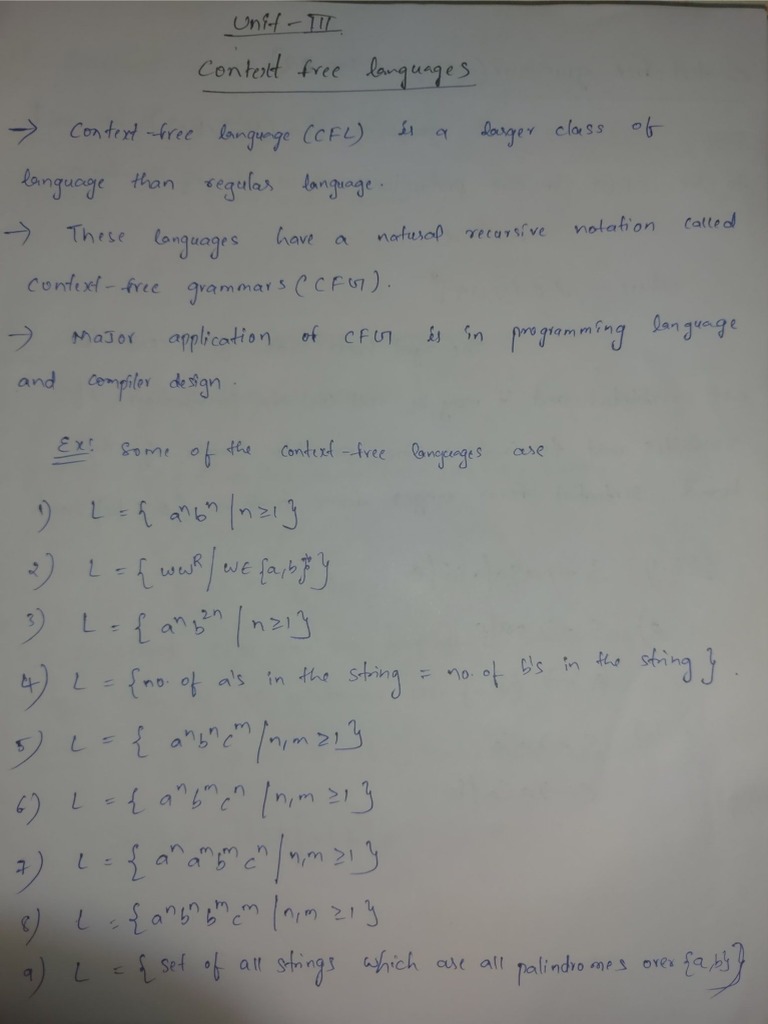 Unit - III
Context free languages
→ Context-free language (CFL) is a larger class of
language than regular language.
→ These languages have a natural recursive notation called
context-free grammars (CFG).
→ Major application of CFG is in programming language
and compiler design.
Ex: Some of the context-free languages are
1) L = { aⁿbⁿ / n≥1 }
2) L = { wwᴿ / w∈ {a,b}* }
3) L = { aⁿb²ⁿ / n≥1 }
4) L = {no. of a's in the string = no. of b's in the string }.
5) L = { aⁿbⁿcᵐ / n,m ≥1 }
6) L = { aⁿbᵐcⁿ / n,m ≥1 }
7) L = { aⁿaᵐbᵐcⁿ / n,m ≥1 }
8) L = { aⁿbⁿbᵐcᵐ / n,m ≥1 }
9) L = { set of all strings which are all palindromes over {a,b} }